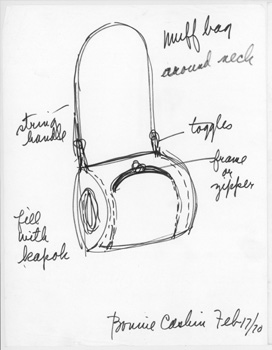 muff bag
around neck
string
handle
toggles
frame
or
zipper
fill
with
kapok
Bonnie Cashin Feb 17/70